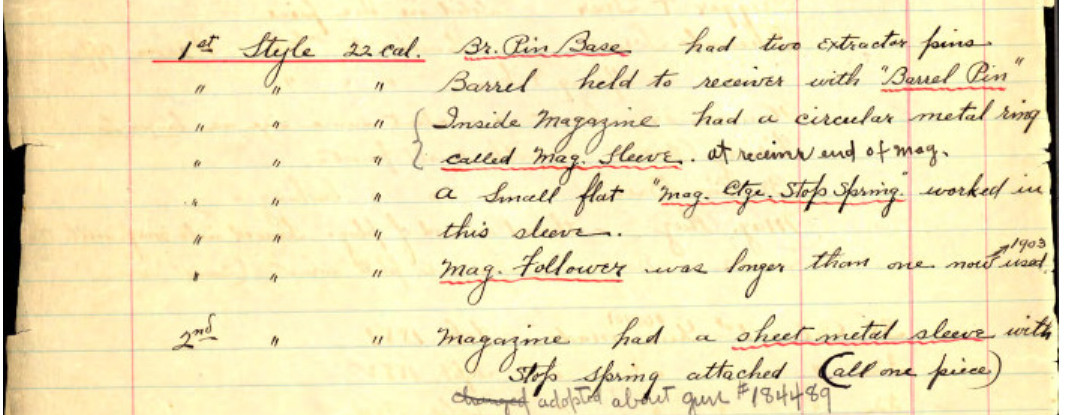 1st Style 22 cal. Br. Pin Base had two extractor pins
" " " Barrel held to receiver with "Barrel Pin"
" " " { Inside Magazine had a circular metal ring
" " " called Mag. Sleeve. at receiver end of mag.
" " " a small flat "Mag. Ctge. Stop Spring." worked in
" " " this sleeve.
" " " Mag. Follower was longer than one now used. 1903
2nd " " Magazine had a sheet metal sleeve with
Stop Spring attached (all one piece)
changed adopted about gun #184489